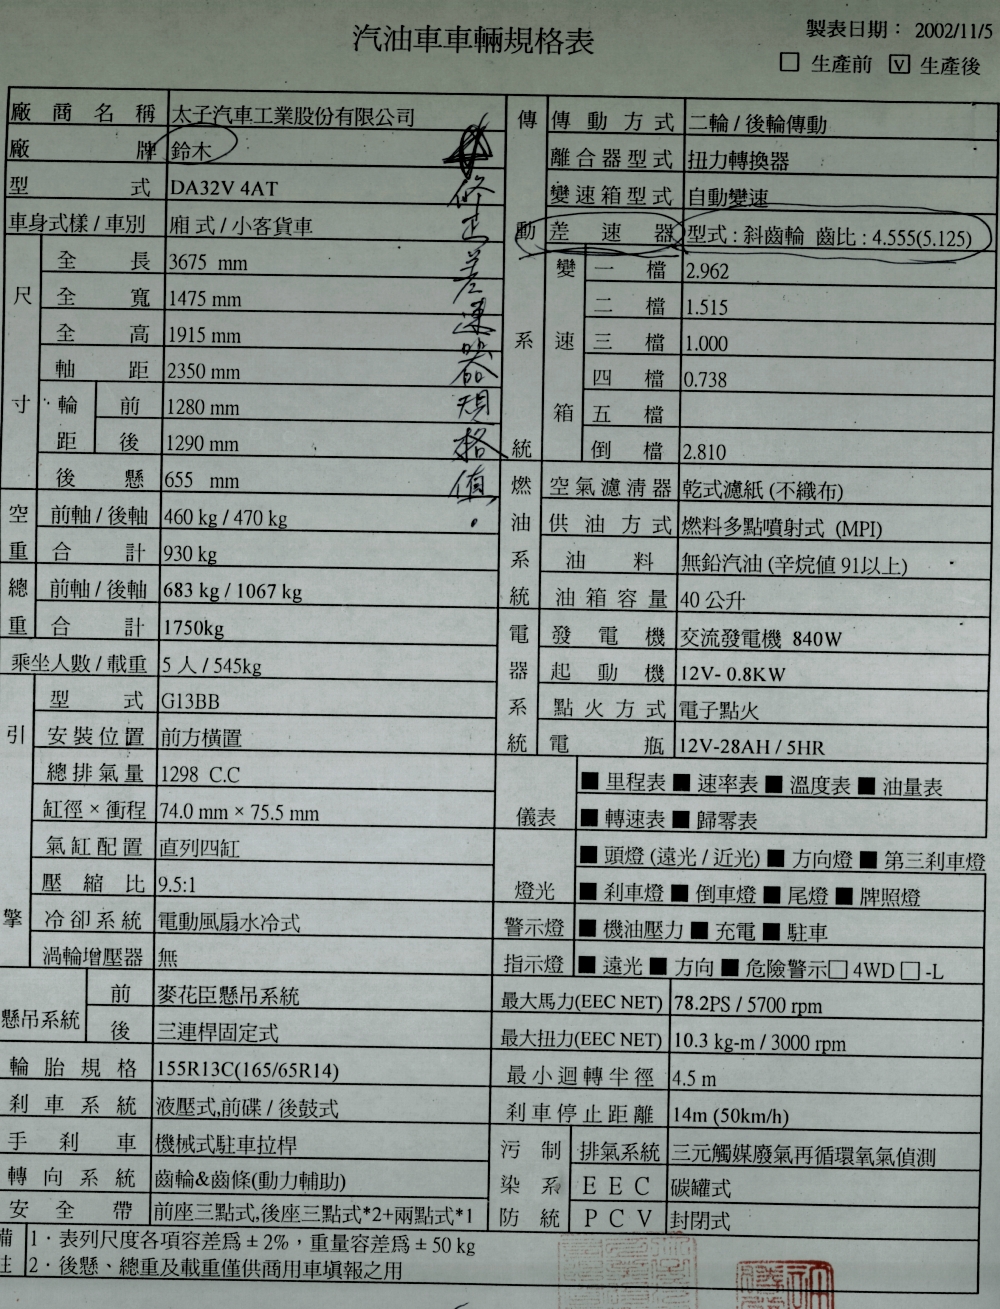 汽油車車輛規格表
製表日期： 2002/11/5
□ 生產前 ☑ 生產後
廠商名稱 太子汽車工業股份有限公司
廠牌 鈴木
型式 DA32V 4AT
車身式樣 / 車別 廂式 / 小客貨車
尺寸
全長 3675 mm
全寬 1475 mm
全高 1915 mm
軸距 2350 mm
輪距 前 1280 mm
後 1290 mm
後懸 655 mm
空重 前軸 / 後軸 460 kg / 470 kg
合計 930 kg
總重 前軸 / 後軸 683 kg / 1067 kg
合計 1750kg
乘坐人數 / 載重 5 人 / 545kg
引擎
型式 G13BB
安裝位置 前方橫置
總排氣量 1298 C.C
缸徑 × 衝程 74.0 mm × 75.5 mm
氣缸配置 直列四缸
壓縮比 9.5:1
冷卻系統 電動風扇水冷式
渦輪增壓器 無
懸吊系統 前 麥花臣懸吊系統
後 三連桿固定式
輪胎規格 155R13C(165/65R14)
剎車系統 液壓式,前碟 / 後鼓式
手剎車 機械式駐車拉桿
轉向系統 齒輪&齒條(動力輔助)
安全帶 前座三點式,後座三點式*2+兩點式*1
修正差速器規格值。
傳動系統
傳動方式 二輪 / 後輪傳動
離合器型式 扭力轉換器
變速箱型式 自動變速
差速器 型式 : 斜齒輪 齒比 : 4.555(5.125)
變速箱
一檔 2.962
二檔 1.515
三檔 1.000
四檔 0.738
五檔
倒檔 2.810
燃油系統
空氣濾清器 乾式濾紙 (不織布)
供油方式 燃料多點噴射式 (MPI)
油料 無鉛汽油 (辛烷值 91以上)
油箱容量 40 公升
電器系統
發電機 交流發電機 840W
起動機 12V- 0.8KW
點火方式 電子點火
電瓶 12V-28AH / 5HR
儀表 ■ 里程表 ■ 速率表 ■ 溫度表 ■ 油量表
■ 轉速表 ■ 歸零表
燈光 ■ 頭燈 (遠光 / 近光) ■ 方向燈 ■ 第三剎車燈
■ 剎車燈 ■ 倒車燈 ■ 尾燈 ■ 牌照燈
警示燈 ■ 機油壓力 ■ 充電 ■ 駐車
指示燈 ■ 遠光 ■ 方向 ■ 危險警示 □ 4WD □ -L
最大馬力(EEC NET) 78.2PS / 5700 rpm
最大扭力(EEC NET) 10.3 kg-m / 3000 rpm
最小迴轉半徑 4.5 m
剎車停止距離 14m (50km/h)
污染防制系統
排氣系統 三元觸媒廢氣再循環氧氣偵測
EEC 碳罐式
PCV 封閉式
備註
1．表列尺度各項容差爲 ± 2%，重量容差爲 ± 50 kg
2．後懸、總重及載重僅供商用車填報之用